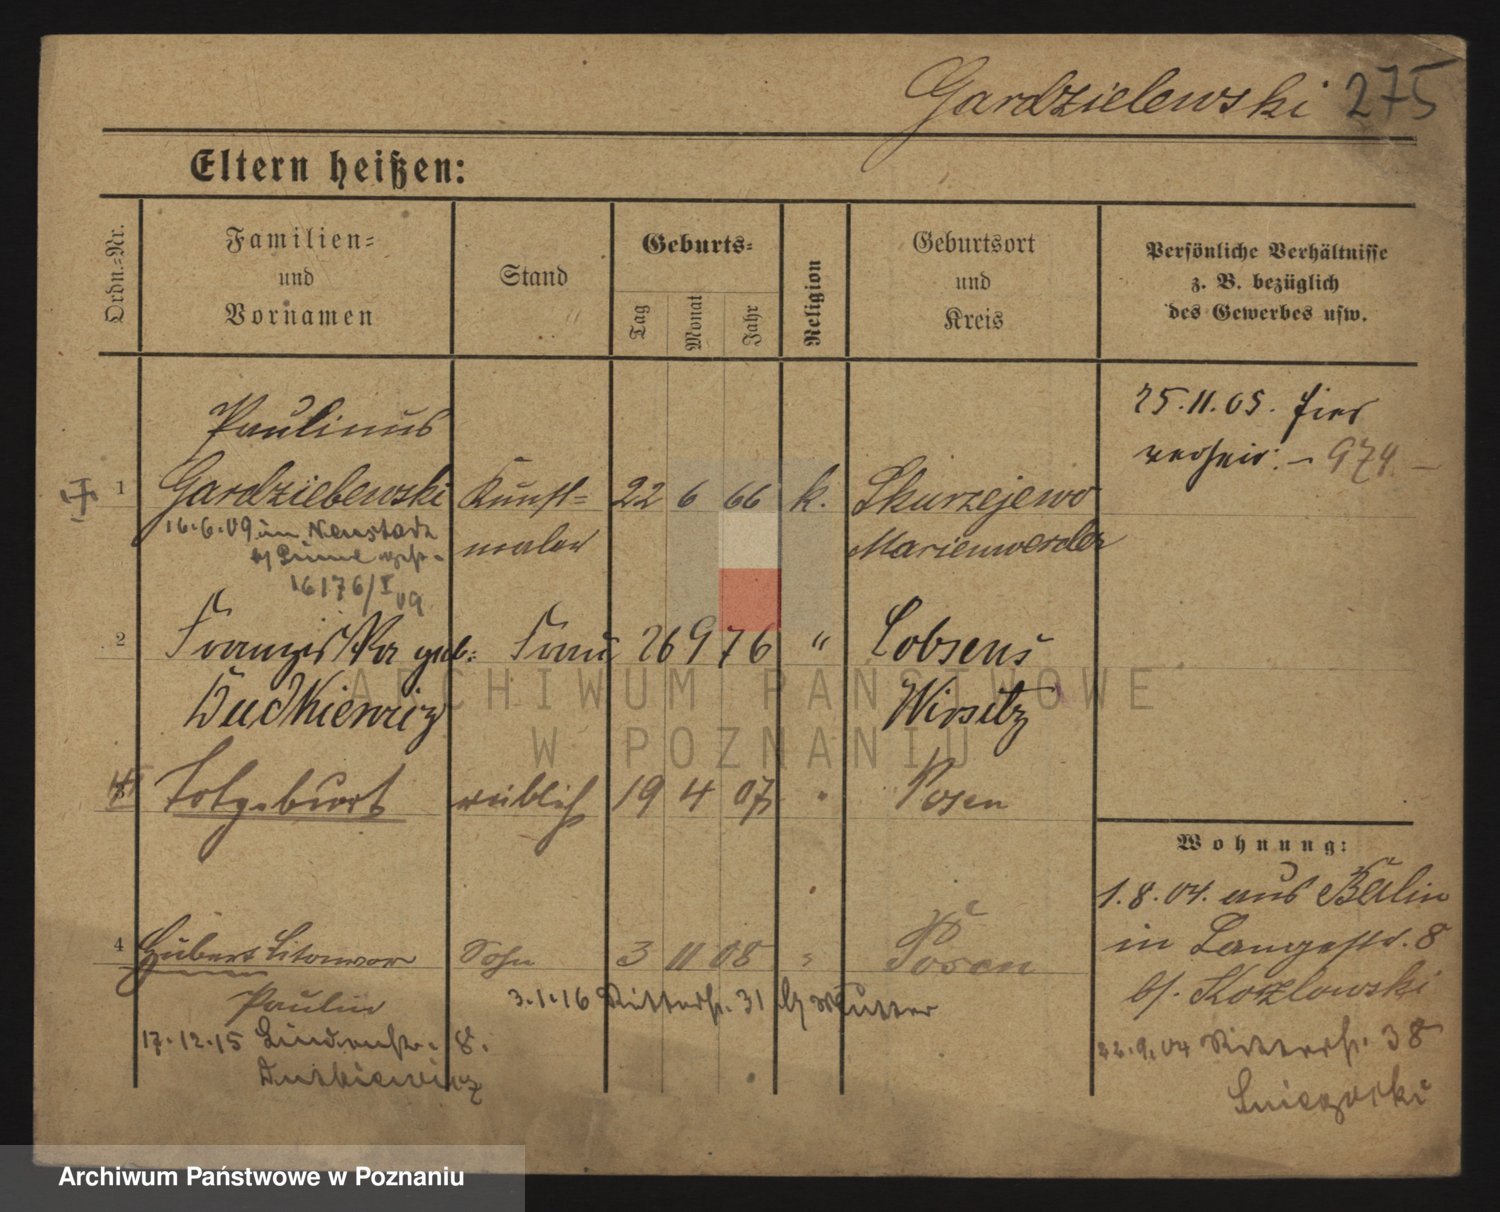 Gardzielewski 275
Eltern heißen:
Ordn.-Nr.
Familien-
und
Vornamen
Stand
Geburts-
Tag
Monat
Jahr
Religion
Geburtsort
und
Kreis
Persönliche Verhältnisse
z. B. bezüglich
des Gewerbes usw.
25.11.05. hier
verheir. - 974. -
Paulinus
1 Gardzielewski Kunst= 22 6 66 k. Skurzejewo
maler Marienwerder
16.6.09 in Neustadt
16176/I 09
2 Franziska geb. Frau 26 9 76 " Lobsens
Dudkiewicz Wirsitz
3 Totgeburt weiblich 19 4 07 " Posen
Wohnung:
1.8.04. aus Berlin
in Langestr. 8
b/. Kozlowski
22.9.04 Ritterstr. 38
4 Hubert Sohn 3 11 08 " Posen
Paulin
3.1.16 Ritterstr. 31 b/ Mutter
17.12.15 Lindenstr. 8.
Dutkiewicz
ARCHIWUM PAŃSTWOWE
W POZNANIU
Archiwum Państwowe w Poznaniu